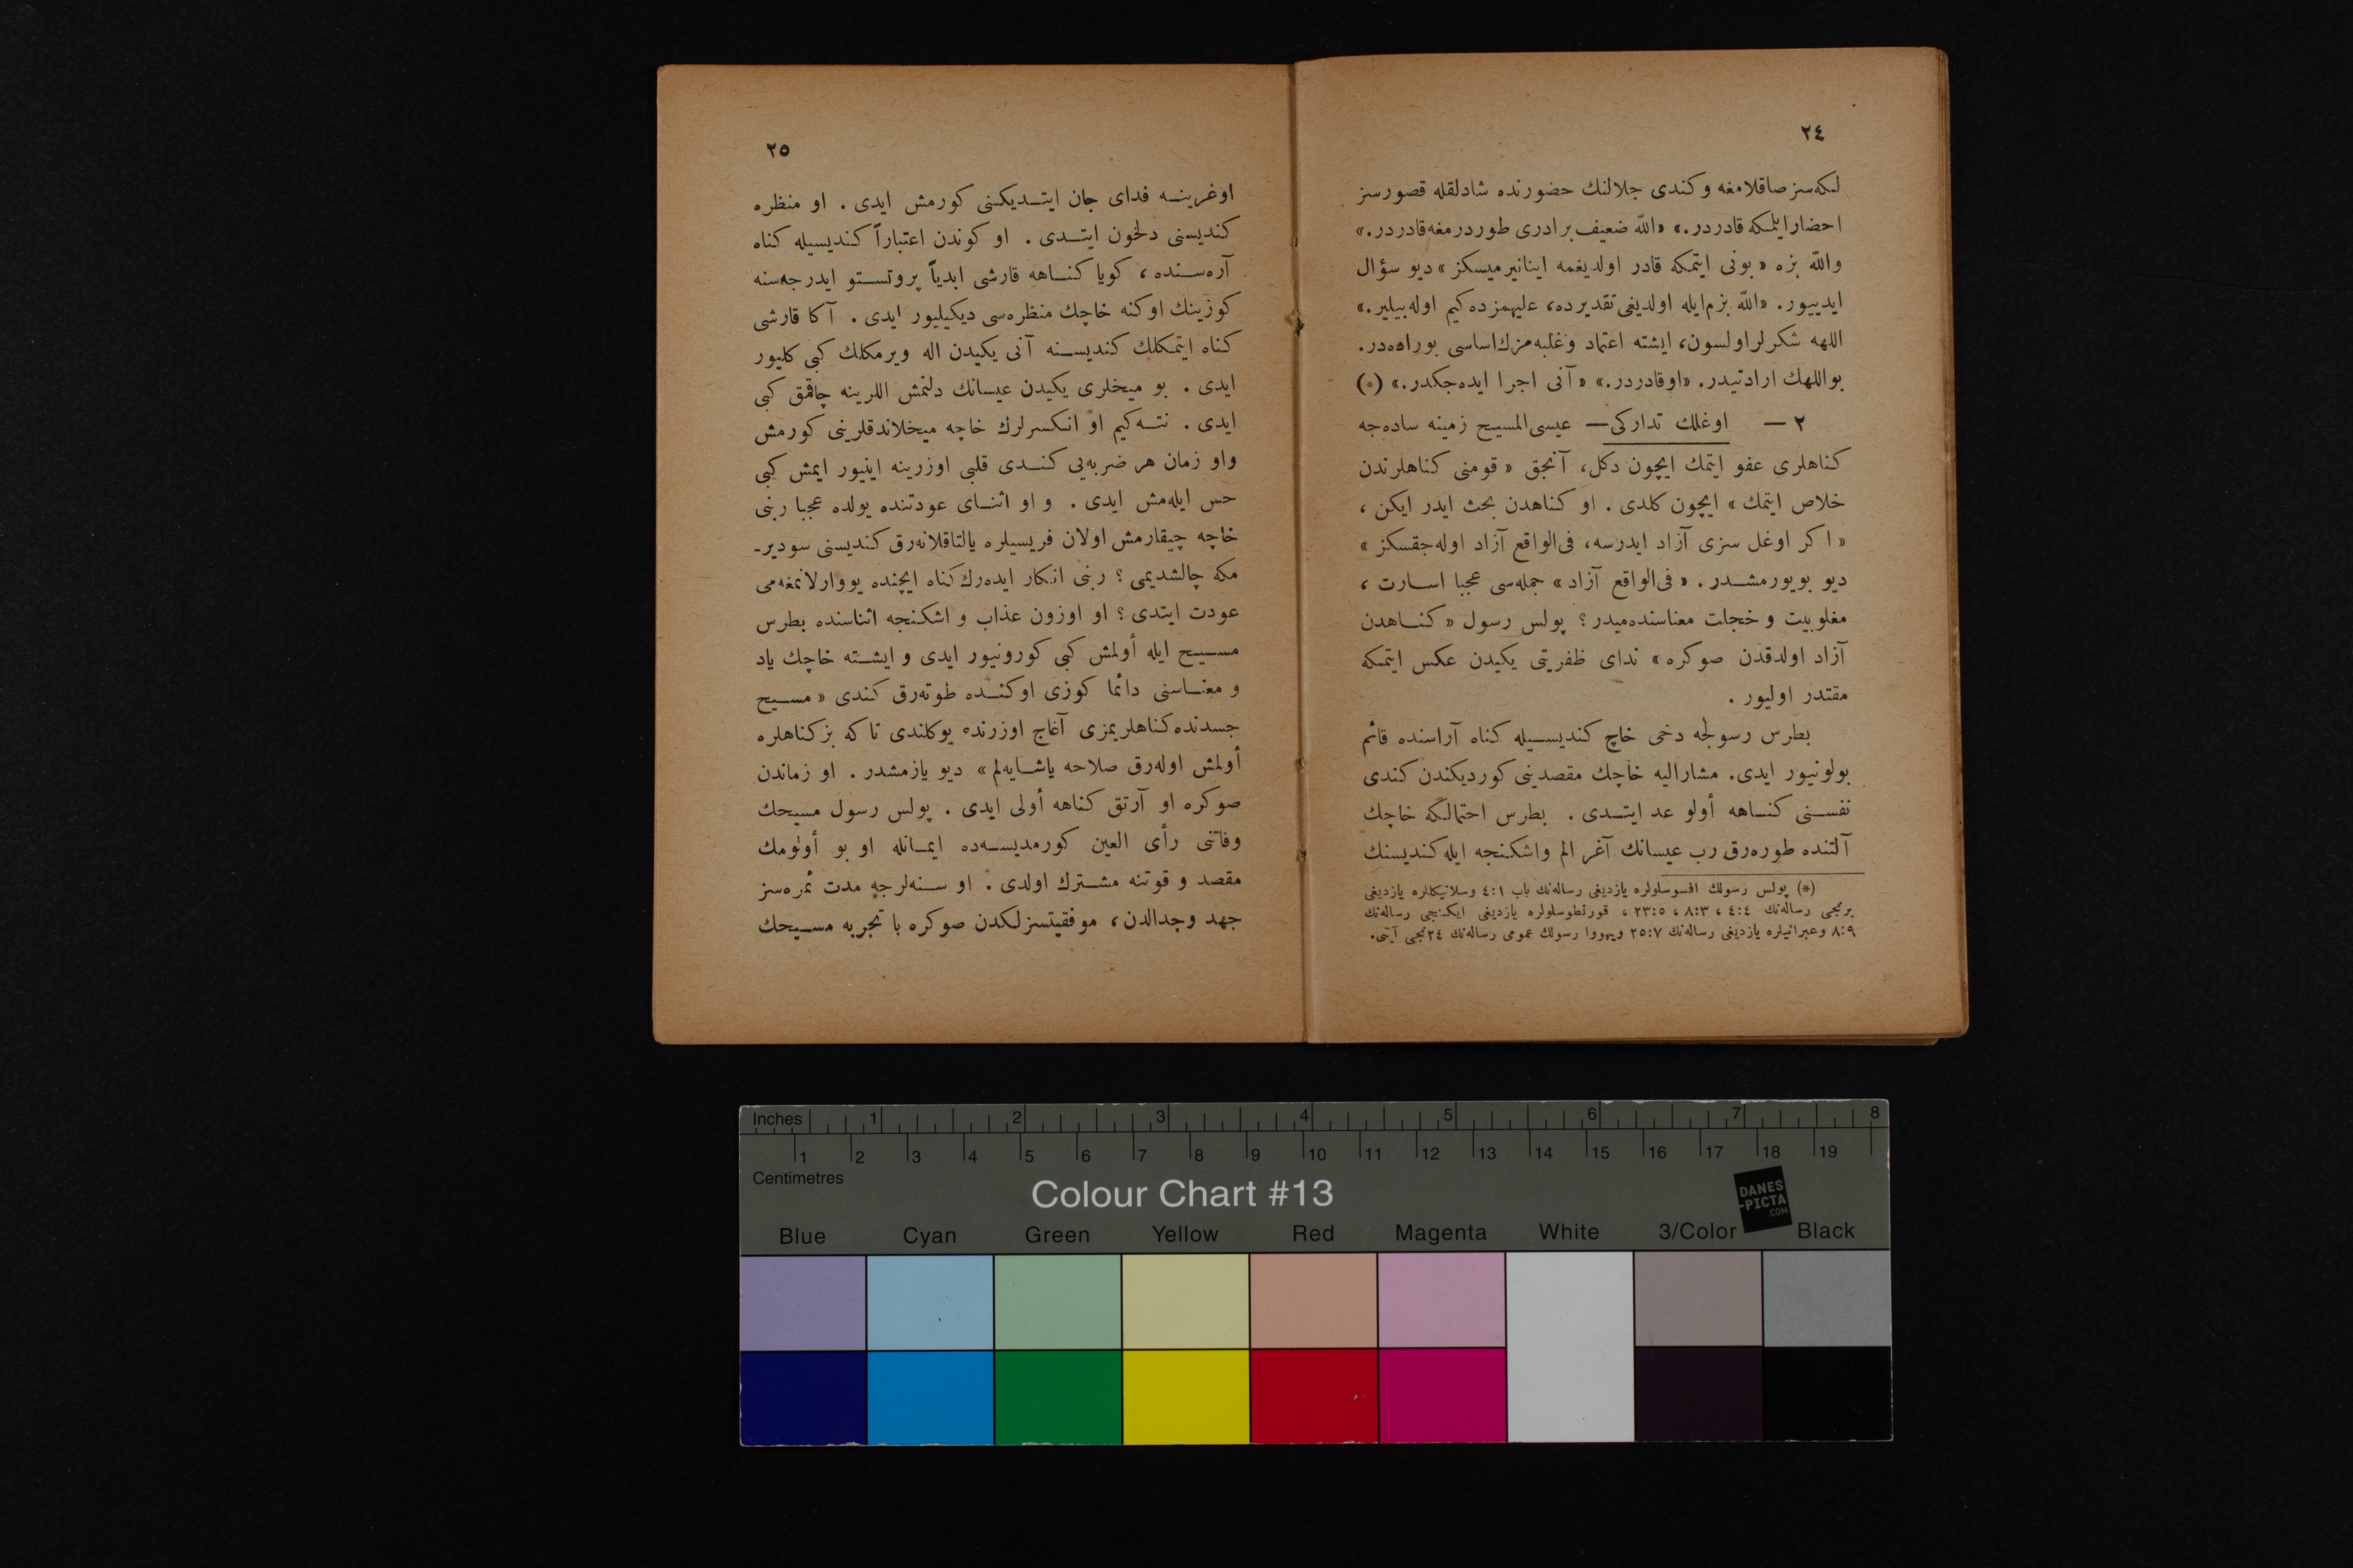 ٢٤
لكه‌سز صاقلامغه و كندى جلالنك حضورنده شادلقله قصورسز
احضار ايلمكه قادردر.» «اللّه ضعيف برادرى طوردرمغه قادردر.»
واللّه بزه «بونى ايتمكه قادر اولديغمه اينانيرميسكز» ديو سؤال
ايدييور. «اللّه بزم ايله اولديغى تقديرده، عليهمزده كيم اوله‌بيلير.»
اللهه شكرلر اولسون، ايشته اعتماد و غلبه‌مزك اساسى بوراده‌در.
بو اللهك ارادتيدر. «او قادردر.» «آنى اجرا ايده‌جكدر.» (*)
٢ — اوغلك تداركى — عيسى المسيح زمينه ساده‌جه
كناهلرى عفو ايتمك ايچون دكل، آنجق «قومنى كناهلرندن
خلاص ايتمك» ايچون كلدى. او كناهدن بحث ايدر ايكن،
«اكر اوغل سزى آزاد ايدرسه، فى‌الواقع آزاد اوله‌جقسكز»
ديو بويورمشدر. «فى‌الواقع آزاد» جمله‌سى عجبا اسارت،
مغلوبيت و خجلت معناسنده‌ميدر؟ پولس رسول «كناهدن
آزاد اولدقدن صوكره» نداى ظفريتى يكيدن عكس ايتمكه
مقتدر اوليور.
بطرس رسولجه دخى خاچ كنديسيله كناه آراسنده قائم
بولونيور ايدى. مشاراليه خاچك مقصدينى كورديكندن كندى
نفسنى كناهه أولو عد ايتدى. بطرس احتمالكه خاچك
آلتنده طوره‌رق رب عيسانك آغر الم و اشكنجه ايله كنديسنك
(*) پولس رسولك افسوسلولره يازديغى رساله‌نك باب ٤:١ وسلانيكللره يازديغى
برنجى رساله‌نك ٤:٤ ، ٨:٣ ، ٢٣:٥ ، قورنطوسلولره يازديغى ايكنجى رساله‌نك
٨:٩ وعبرانيلره يازديغى رساله‌نك ٢٥:٧ ويهووا رسولك عمومى رساله‌نك ٢٤نجى آيتى.
٢٥
اوغرينه فداى جان ايتديكنى كورمش ايدى. او منظره
كنديسنى دلخون ايتدى. او كوندن اعتباراً كنديسيله كناه
آره‌سنده، كويا كناهه قارشى ابدياً پروتستو ايدرجه‌سنه
كوزينك اوكنه خاچك منظره‌سى ديكيليور ايدى. آكا قارشى
كناه ايتمكلك كنديسنه آنى يكيدن اله ويرمكلك كبى كليور
ايدى. بو ميخلرى يكيدن عيسانك دلنمش اللرينه چاقمق كبى
ايدى. نته‌كيم او انكسرلرك خاچه ميخلاندقلرينى كورمش
واو زمان هر ضربه‌يى كندى قلبى اوزرينه اينيور ايمش كبى
حس ايله‌مش ايدى. و او اثناى عودتنده يولده عجبا ربنى
خاچه چيقارمش اولان فريسيلره يالتاقلانه‌رق كنديسنى سودير-
مكه چالشديمى؟ ربنى انكار ايده‌رك كناه ايچنده يووارلانمغه‌مى
عودت ايتدى؟ او اوزون عذاب و اشكنجه اثناسنده بطرس
مسيح ايله أولمش كبى كورونيور ايدى و ايشته خاچك ياد
و معناسنى دائما كوزى اوكنده طوته‌رق كندى «مسيح
جسدنده كناهلريمزى آغاج اوزرنده يوكلندى تا كه بز كناهلره
أولمش اوله‌رق صلاحه ياشايه‌لم» ديو يازمشدر. او زماندن
صوكره او آرتق كناهه أولى ايدى. پولس رسول مسيحك
وفاتنى رأى العين كورمديسه‌ده ايمانله او بو أولومك
مقصد و قوتنه مشترك اولدى. او سنه‌لرجه مدت ثمره‌سز
جهد وجدالدن، موفقيتسزلكدن صوكره با تجربه مسيحك
Inches 1 2 3 4 5 6 7 8
1 2 3 4 5 6 7 8 9 10 11 12 13 14 15 16 17 18 19
Centimetres
Colour Chart #13
DANES
-PICTA
.COM
Blue Cyan Green Yellow Red Magenta White 3/Color Black